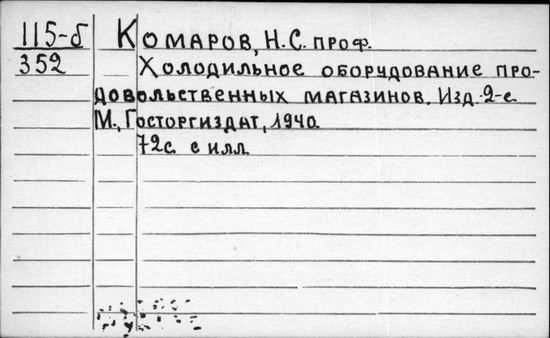 115-б КОМАРОВ, Н.С. ПРОФ.
352 ХОЛОДИЛЬНОЕ ОБОРУДОВАНИЕ ПРО-
ДОВОЛЬСТВЕННЫХ МАГАЗИНОВ. ИЗД. 2-е.
М., ГОСТОРГИЗДАТ, 1940.
72с. с илл.